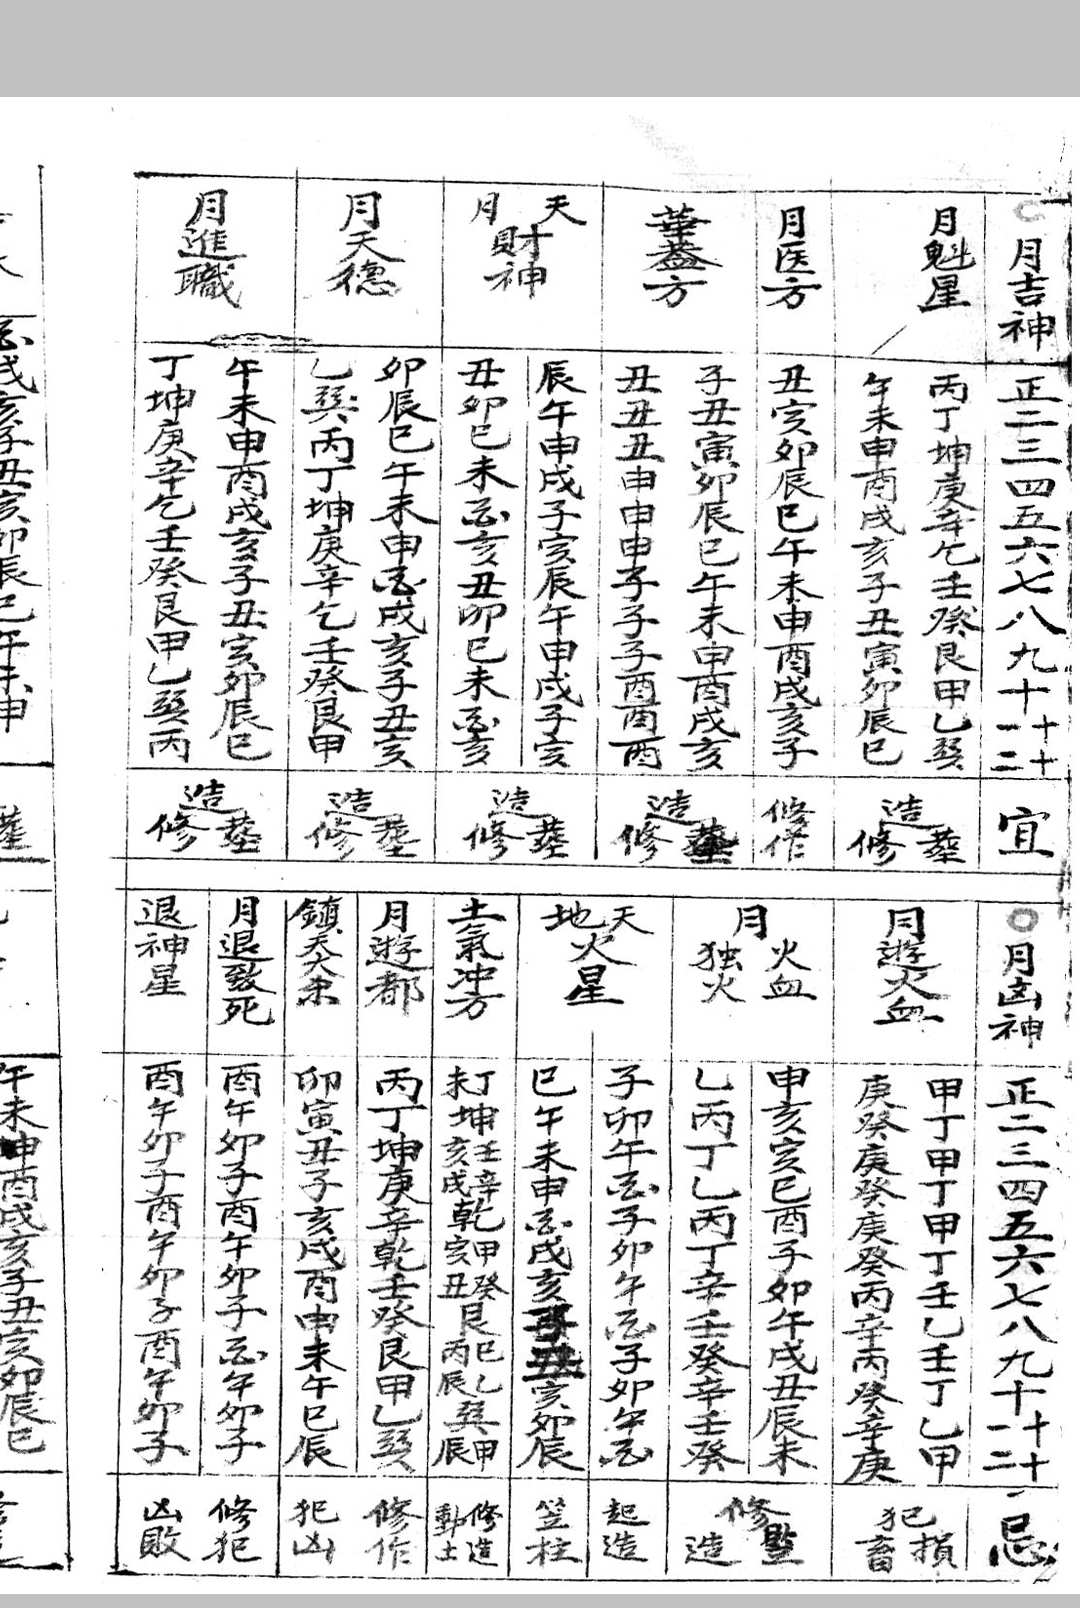 月吉神
正二三四五六七八九十十一十二
宜
月魁星
丙丁坤庚辛乞壬癸艮甲乙巽
午未申酉戌亥子丑寅卯辰巳
造修葬
月医方
丑亥卯辰巳午未申酉戌亥子
修作
華蓋方
子丑寅卯辰巳午未申酉戌亥
丑丑丑申申申子子子酉酉酉
造修葬
天月財神
辰午申戌子亥辰午申戌子亥
丑卯巳未酉亥丑卯巳未酉亥
造修葬
月天德
卯辰巳午未申酉戌亥子丑亥
乙巽丙丁坤庚辛乞壬癸艮甲
造修葬
月進職
午未申酉戌亥子丑亥卯辰巳
丁坤庚辛乞壬癸艮甲乙巽丙
造修葬
月凶神
正二三四五六七八九十十一十二
忌
月遊火血
甲丁甲丁甲丁壬乙壬丁乙甲
庚癸庚癸庚癸丙辛丙癸辛庚
犯損畜
月火血
独火
申亥亥巳酉子卯午戌丑辰未
乙丙丁乙丙丁辛壬癸辛壬癸
修造
天地火星
子卯午酉子卯午酉子卯午酉
巳午未申酉戌亥子丑亥卯辰
起造
竖柱
土氣冲方
丁坤壬辛乾甲癸艮巳乙巽甲
未亥戌亥丑丙辰辰
修造動土
月遊都
丙丁坤庚辛乾壬癸艮甲乙巽
修作
鎮天大
卯寅丑子亥戌酉申未午巳辰
犯凶
月退致死
酉午卯子酉午卯子酉午卯子
修犯
退神星
酉午卯子酉午卯子酉午卯子
凶敗
酉戌亥子丑亥卯辰巳午未申
葬
午未申酉戌亥子丑亥卯辰巳